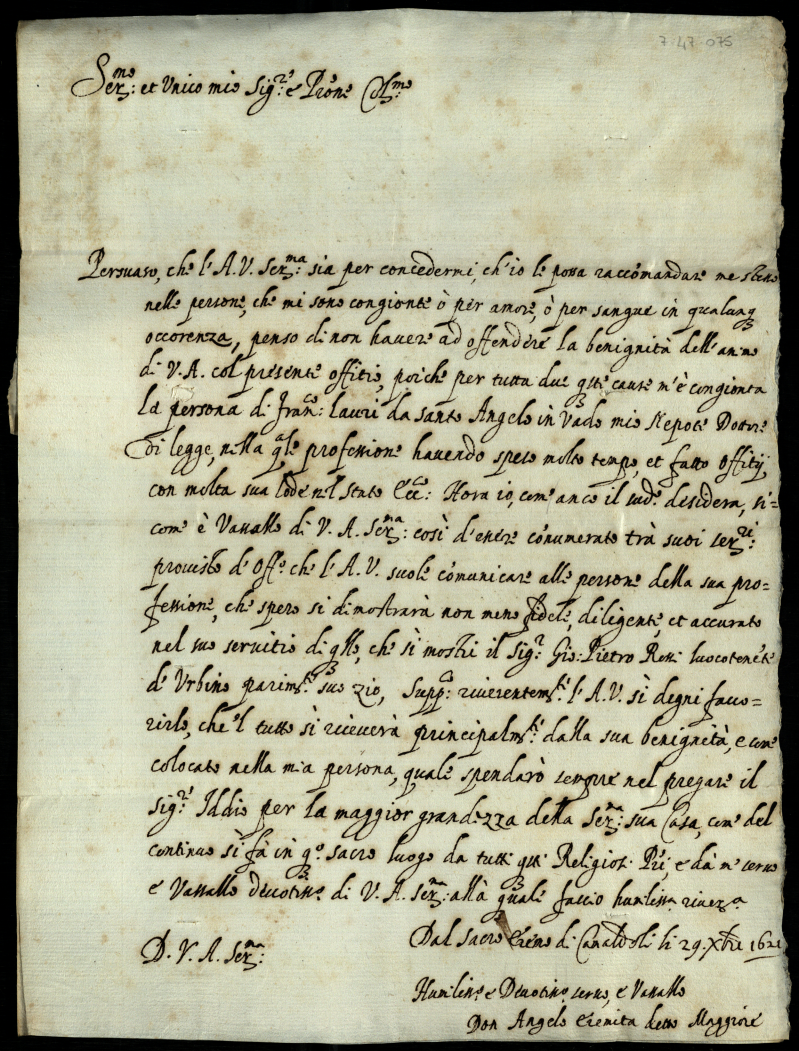 7-47-075
Ser.mo et Vnico mio Sig.re e Prone Col.mo
Persuaso, che l'A.V. Ser.ma sia per concedermi, ch'io le possa raccomandare me stesso
nelle persone, che mi sono congionte ò per amore, ò per sangue in qualunq
occorenza, penso di non havere ad offendere la benignità dell'animo
di V.A. col presente offitio, poiche per tutta due qste cause m'è congionta
la persona di Fran.co Lauri da santo Angelo in Vado mio Nepote Dottore
di legge, nella qle professione havendo speso molto tempo, et fatto offitij
con molta sua lode nel stato Ecc.: Hora io, come anco il sud.o desidera, si=
come è Vassallo di V.A. Ser.ma: così d'essere conumerato trà suoi ser.ri:
provisto de Off.o che l'A.V. suole comunicare alle persone della sua pro=
fessione, che spero si dimostrarà non meno fidele, diligente, et accurato
nel suo servitio di qllo, che si mostri il Sig.r Gio: Pietro Rossi luocotenete
d'Vrbino parim.te suo zio, Supp.co: riverentem.te l'A.V. sì degni favo=
rirlo, che 'l tutto sì riceverà principalm.te dalla sua benignità, e come
colocato nella mia persona, quale spendarò sempre nel pregare il
Sig.re Iddio per la maggior grandezza della Ser.ma sua Casa, come del
continuo sì fà in q.o sacro luogo da tutti qsti Religiosi Pri, e dà me servo
e Vassallo devotiss.o di V.A. Ser.ma: alla quale faccio humiliss.a river.a
Dal Sacro Eremo di Camaldoli li 29. Xbre 1621
D. V. A. Ser.ma:
Humiliss.o e Devotiss.o servo, e Vassallo
Don Angelo Eremita detto Maggiore